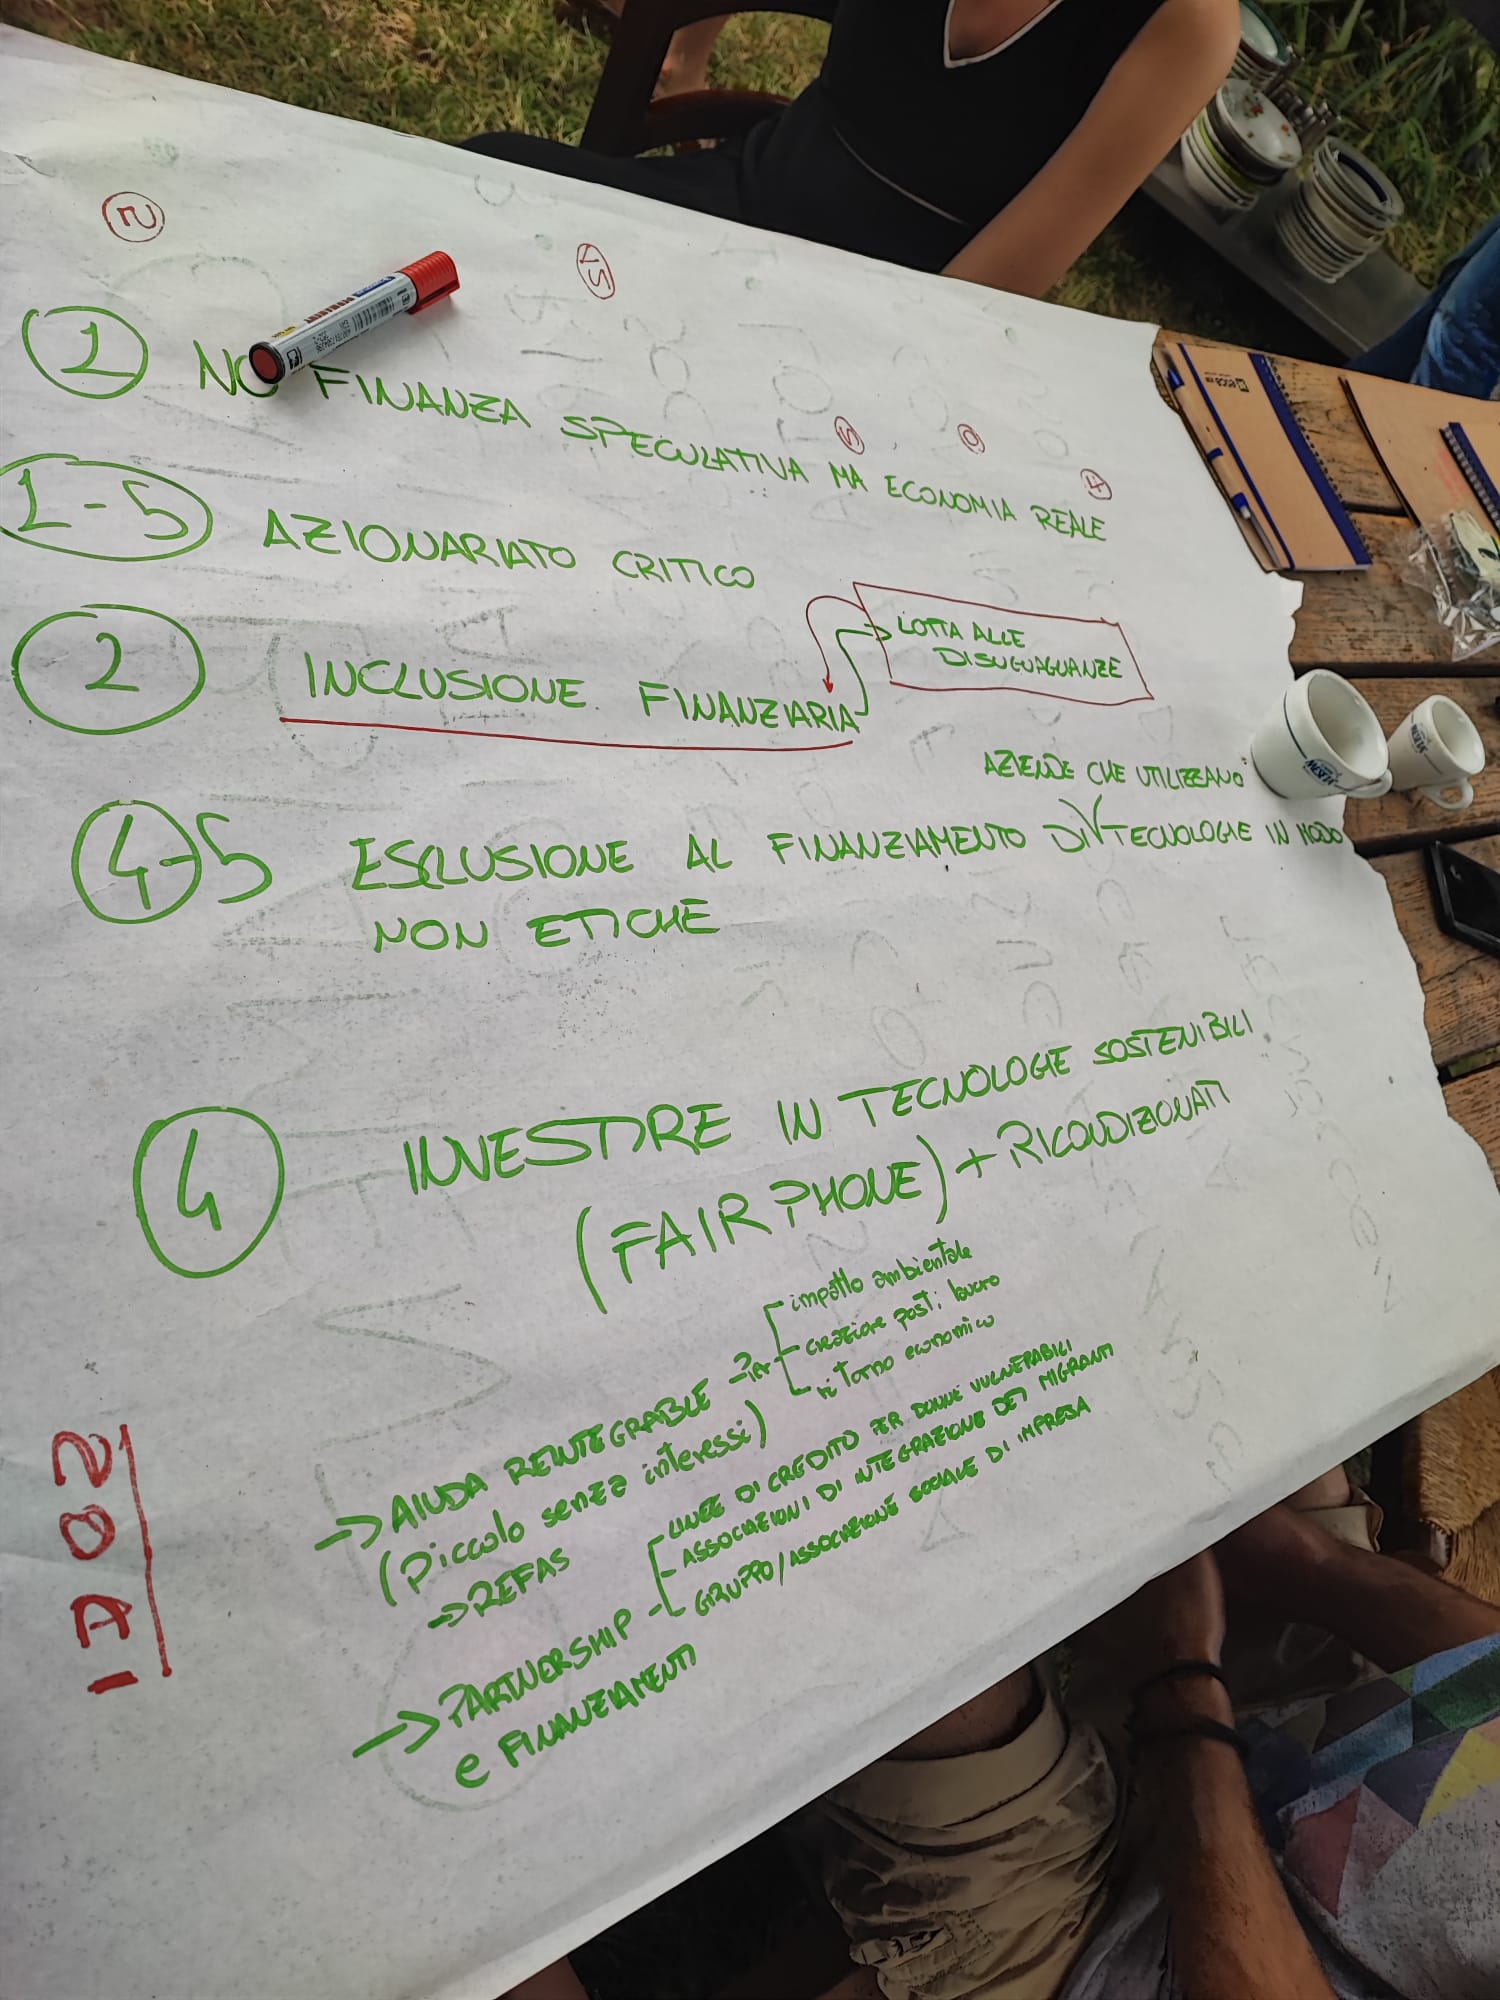 2
15
5
0
4
1 NO FINANZA SPECULATIVA MA ECONOMIA REALE
1-5 AZIONARIATO CRITICO
2 INCLUSIONE FINANZIARIA
LOTTA ALLE
DISUGUAGLIANZE
AZIENDE CHE UTILIZZANO
4-5 ESCLUSIONE AL FINANZIAMENTO DI V TECNOLOGIE IN MODO
NON ETICHE
4 INVESTIRE IN TECNOLOGIE SOSTENIBILI
(FAIR PHONE) + RICONDIZIONATI
→ AIUDA REINTEGRABLE → per
impatto ambientale
creazione posti lavoro
ritorno economico
(piccolo senza interessi)
→ REFAS
→ PARTNERSHIP
e FINANZIAMENTI
LINEE DI CREDITO PER DONNE VULNERABILI
ASSOCIAZIONI DI INTEGRAZIONE DEI MIGRANTI
GRUPPO/ASSOCIAZIONE SOCIALE DI IMPRESA
PERMANENT